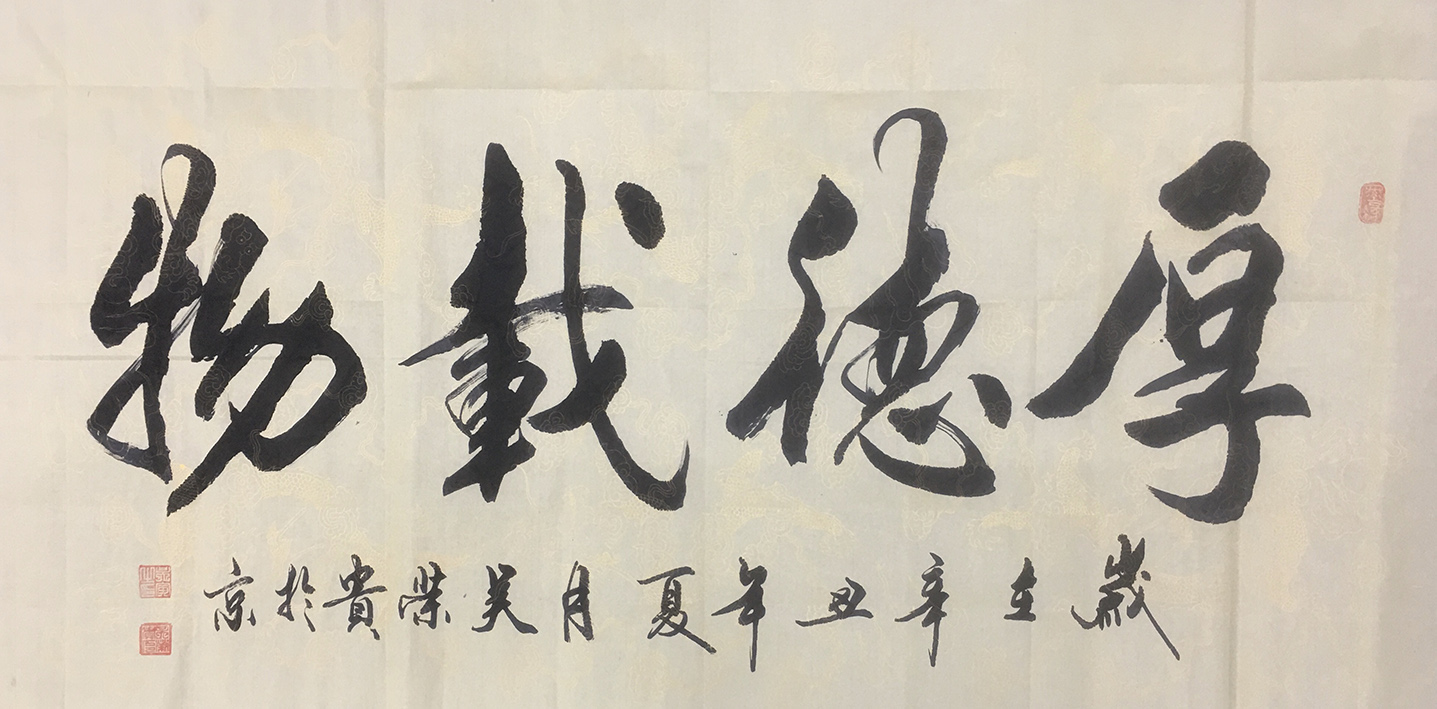 厚德載物
歲在辛丑年夏月吴榮貴於京